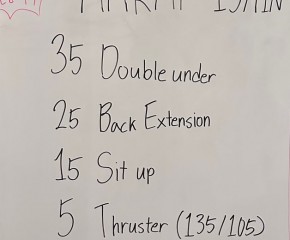 35 Double under
25 Back Extension
15 Sit up
5 Thruster (135/105)